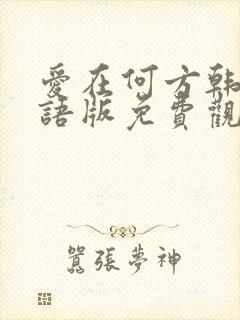 愛在何方韩
語版免費觀
囂張夢神